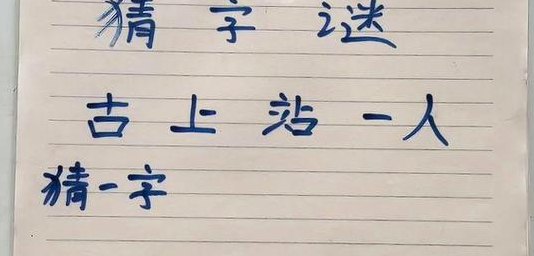 猜字谜
古上站一人
猜一字